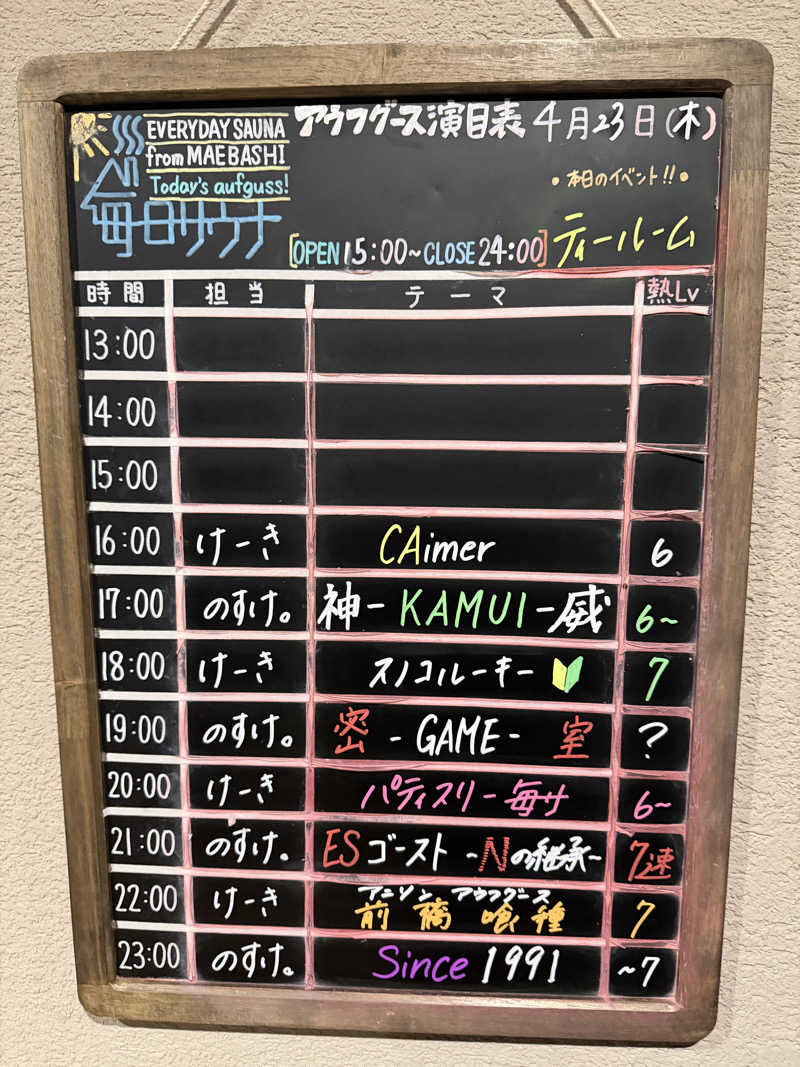 EVERYDAY SAUNA
from MAEBASHI
Today's aufguss!
毎日サウナ
アウフグース演目表 4月23日(木)
•本日のイベント!!•
[OPEN 15:00~CLOSE 24:00] ティールーム
時間 担当 テーマ 熱Lv
13:00
14:00
15:00
16:00 けーき CAimer 6
17:00 のすけ。 神-KAMUI-威 6~
18:00 けーき スノコルーキー🔰 7
19:00 のすけ。 密-GAME-室 ?
20:00 けーき パティスリー毎サ 6~
21:00 のすけ。 ESゴースト-Nの継承- 7速
アニソン アウフグース
22:00 けーき 前橋喰種 7
23:00 のすけ。 Since 1991 ~7